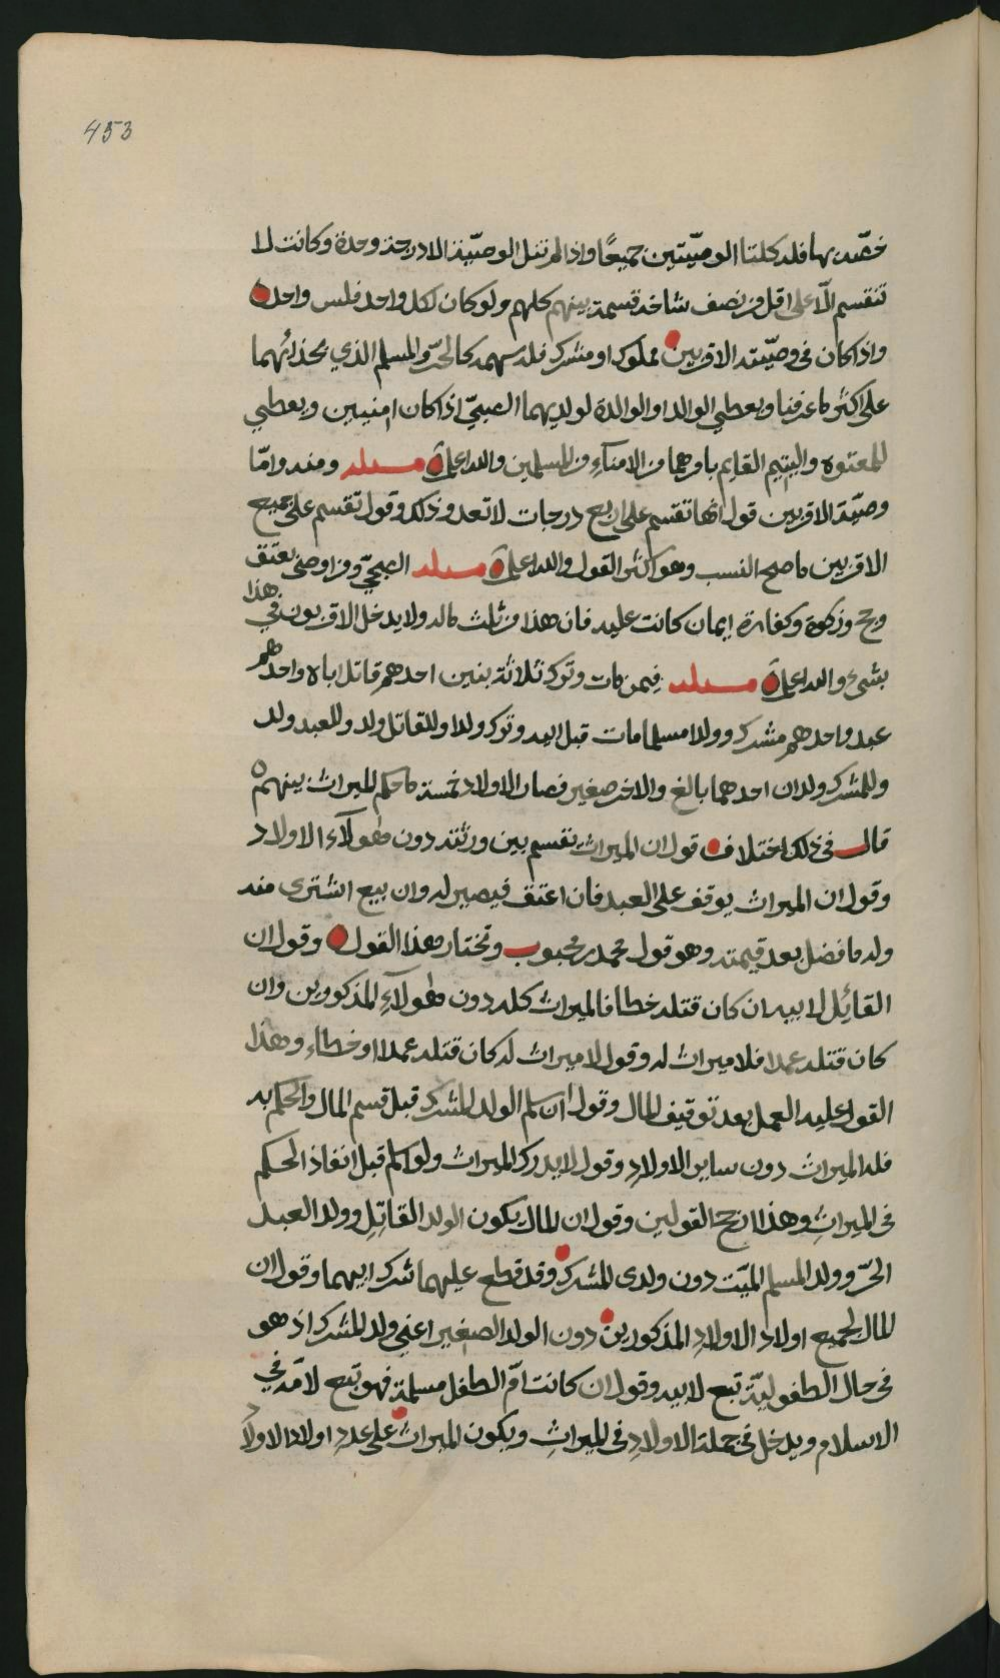 453
خصّه بها فله كلتا الوصيّتين جميعًا واذا لم تنل الوصيّة الا درجة وحدة وكانت لا
تنقسم الّا على اقل من نصف شاخه قسمة بينهم كلهم ولو كان لكل واحد فلس واحد
واذا كان في وصيّته الاقربين مملوك او مشرك فله سهمه كالحرّ والمسلم الذي بحذائهما
على اكثر ما عرفنا ويعطى الوالد او الوالدة لولديهما الصبيّ اذا كان امنيين ويعطى
للمعتوه واليتيم القايم بامرهما من الامنآء من المسلمين والله اعلم مسئله ومنه وامّا
وصيّة الاقربين قول انها تقسم على اربع درجات لا تعدو ذلك وقول تقسم على جميع
الاقربين ما صح النسب وهو اكثر القول والله اعلم مسئله الصبحيّ ومن اوصى بعتق
وحج وزكوة وكفارة ايمان كانت عليه فان هذا من ثلث ماله ولا يدخل الاقربون في هذا
بشىء والله اعلم مسئله فيمن مات وترك ثلاثة بنين احدهم قاتل اباه واحدهم
عبد واحدهم مشرك وولدا مسلما مات قبل ابيه وترك ولدا وللقاتل ولد وللعبد ولد
وللمشرك ولدان احدهما بالغ والاخر صغير فصار الاولاد خمسة ما حكم الميراث بينهم
قال في ذلك اختلاف قول ان الميراث يقسم بين ورثته دون هولآء الاولاد
وقول ان الميراث يوقف على العبد فان اعتق فيصير له وان بيع اشترى منه
وله ما فضل بعد قيمته وهو قول محمد بن محبوب ونختار هذا القول وقول ان
القائل لابيه ان كان قتله خطا فالميراث كله دون هولآءِ المذكورين وان
كان قتله عمدا فلا ميراث له وقول لا ميراث له كان قتله عمدا او خطاء وهذا
القول عليه العمل بعد توقيف المال وقول ان اسلم الولد المشرك قبل قسم المال والحكم به
فله الميراث دون ساير الاولادِ وقول لا يدرك الميراث ولو اسلم قبل انفاذ الحكم
في الميراثِ وهذا ارجح القولين وقول ان المال يكون لولد القاتِلِ وولد العبد
الحرّ وولد المسلم الميّت دون ولدى المشرك وقد قطع عليهما شرك ابيهما وقول ان
المال لجميع اولاد الاولادِ المذكورين دون الولد الصغير اعني ولد المشرك اذ هو
في حال الطفوليّة تبع لابيه وقول ان كانت امّ الطفل مسلمة فهو تبع لامّه في
الاسلام ويدخل في جملة الاولادِ في الميراثِ ويكون الميراث على عددِ اولاد الاولاد